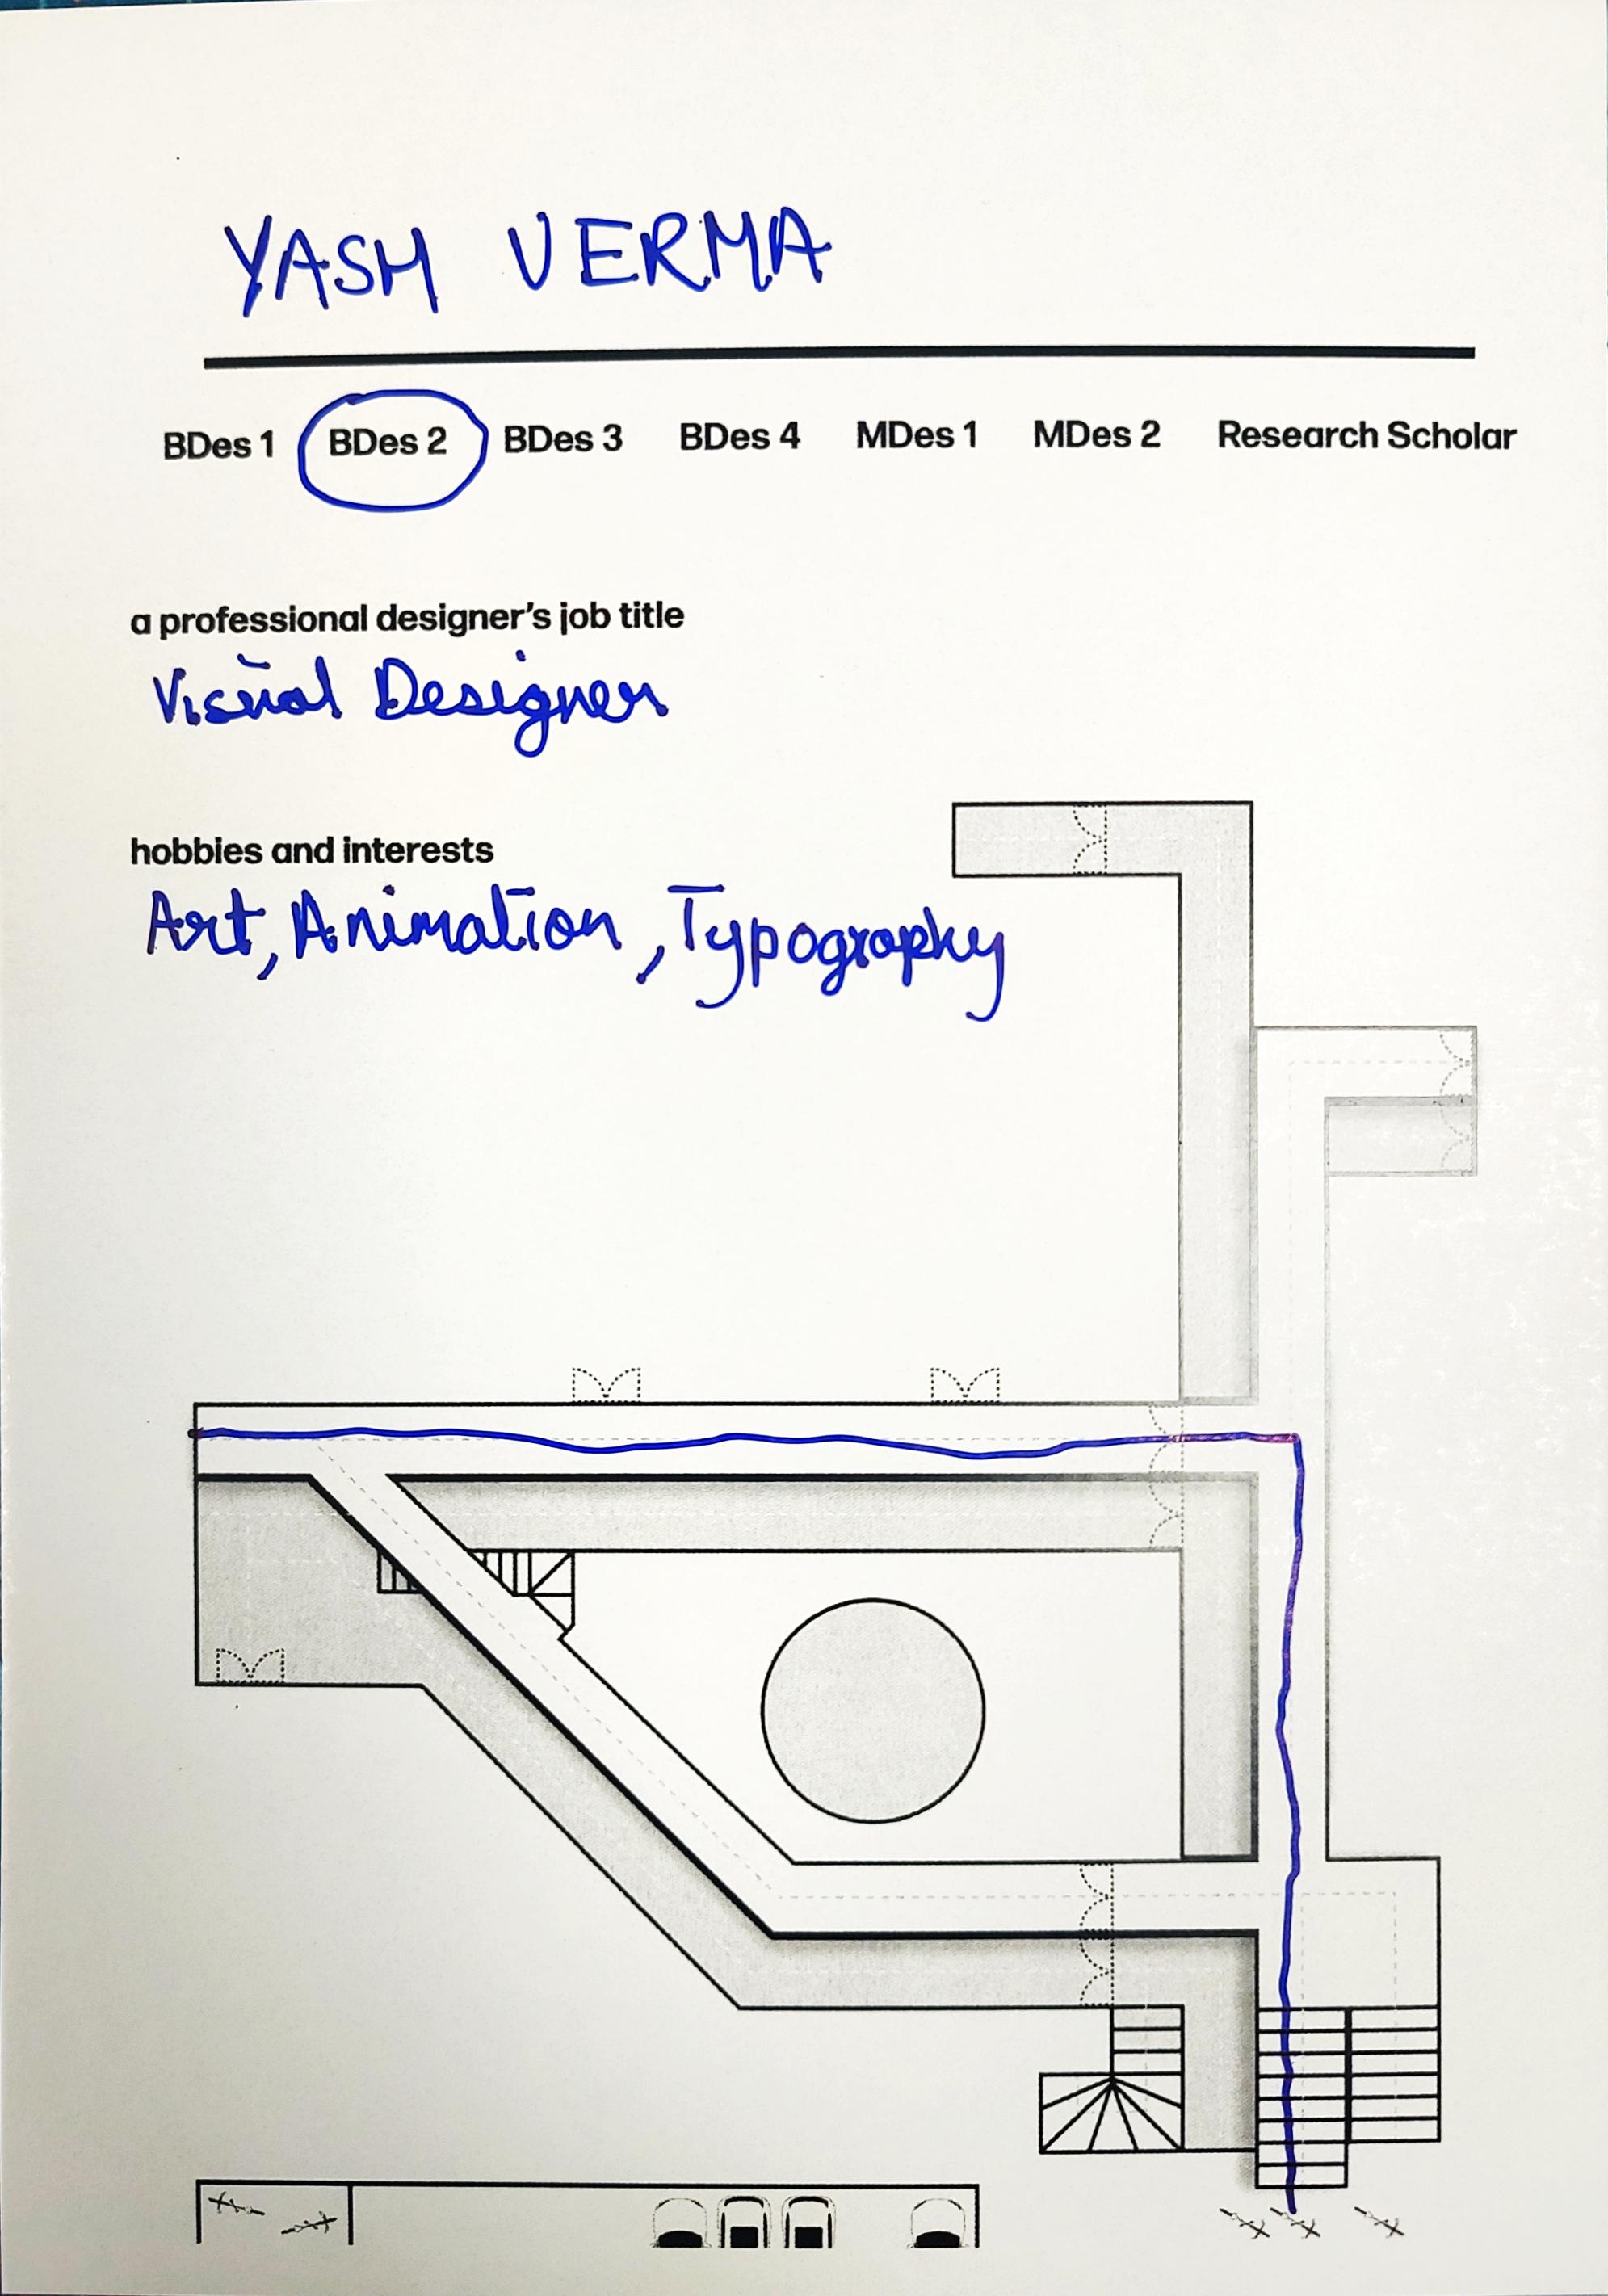 YASH VERMA
BDes 1 BDes 2 BDes 3 BDes 4 MDes 1 MDes 2 Research Scholar
a professional designer's job title
Visual Designer
hobbies and interests
Art, Animation, Typography